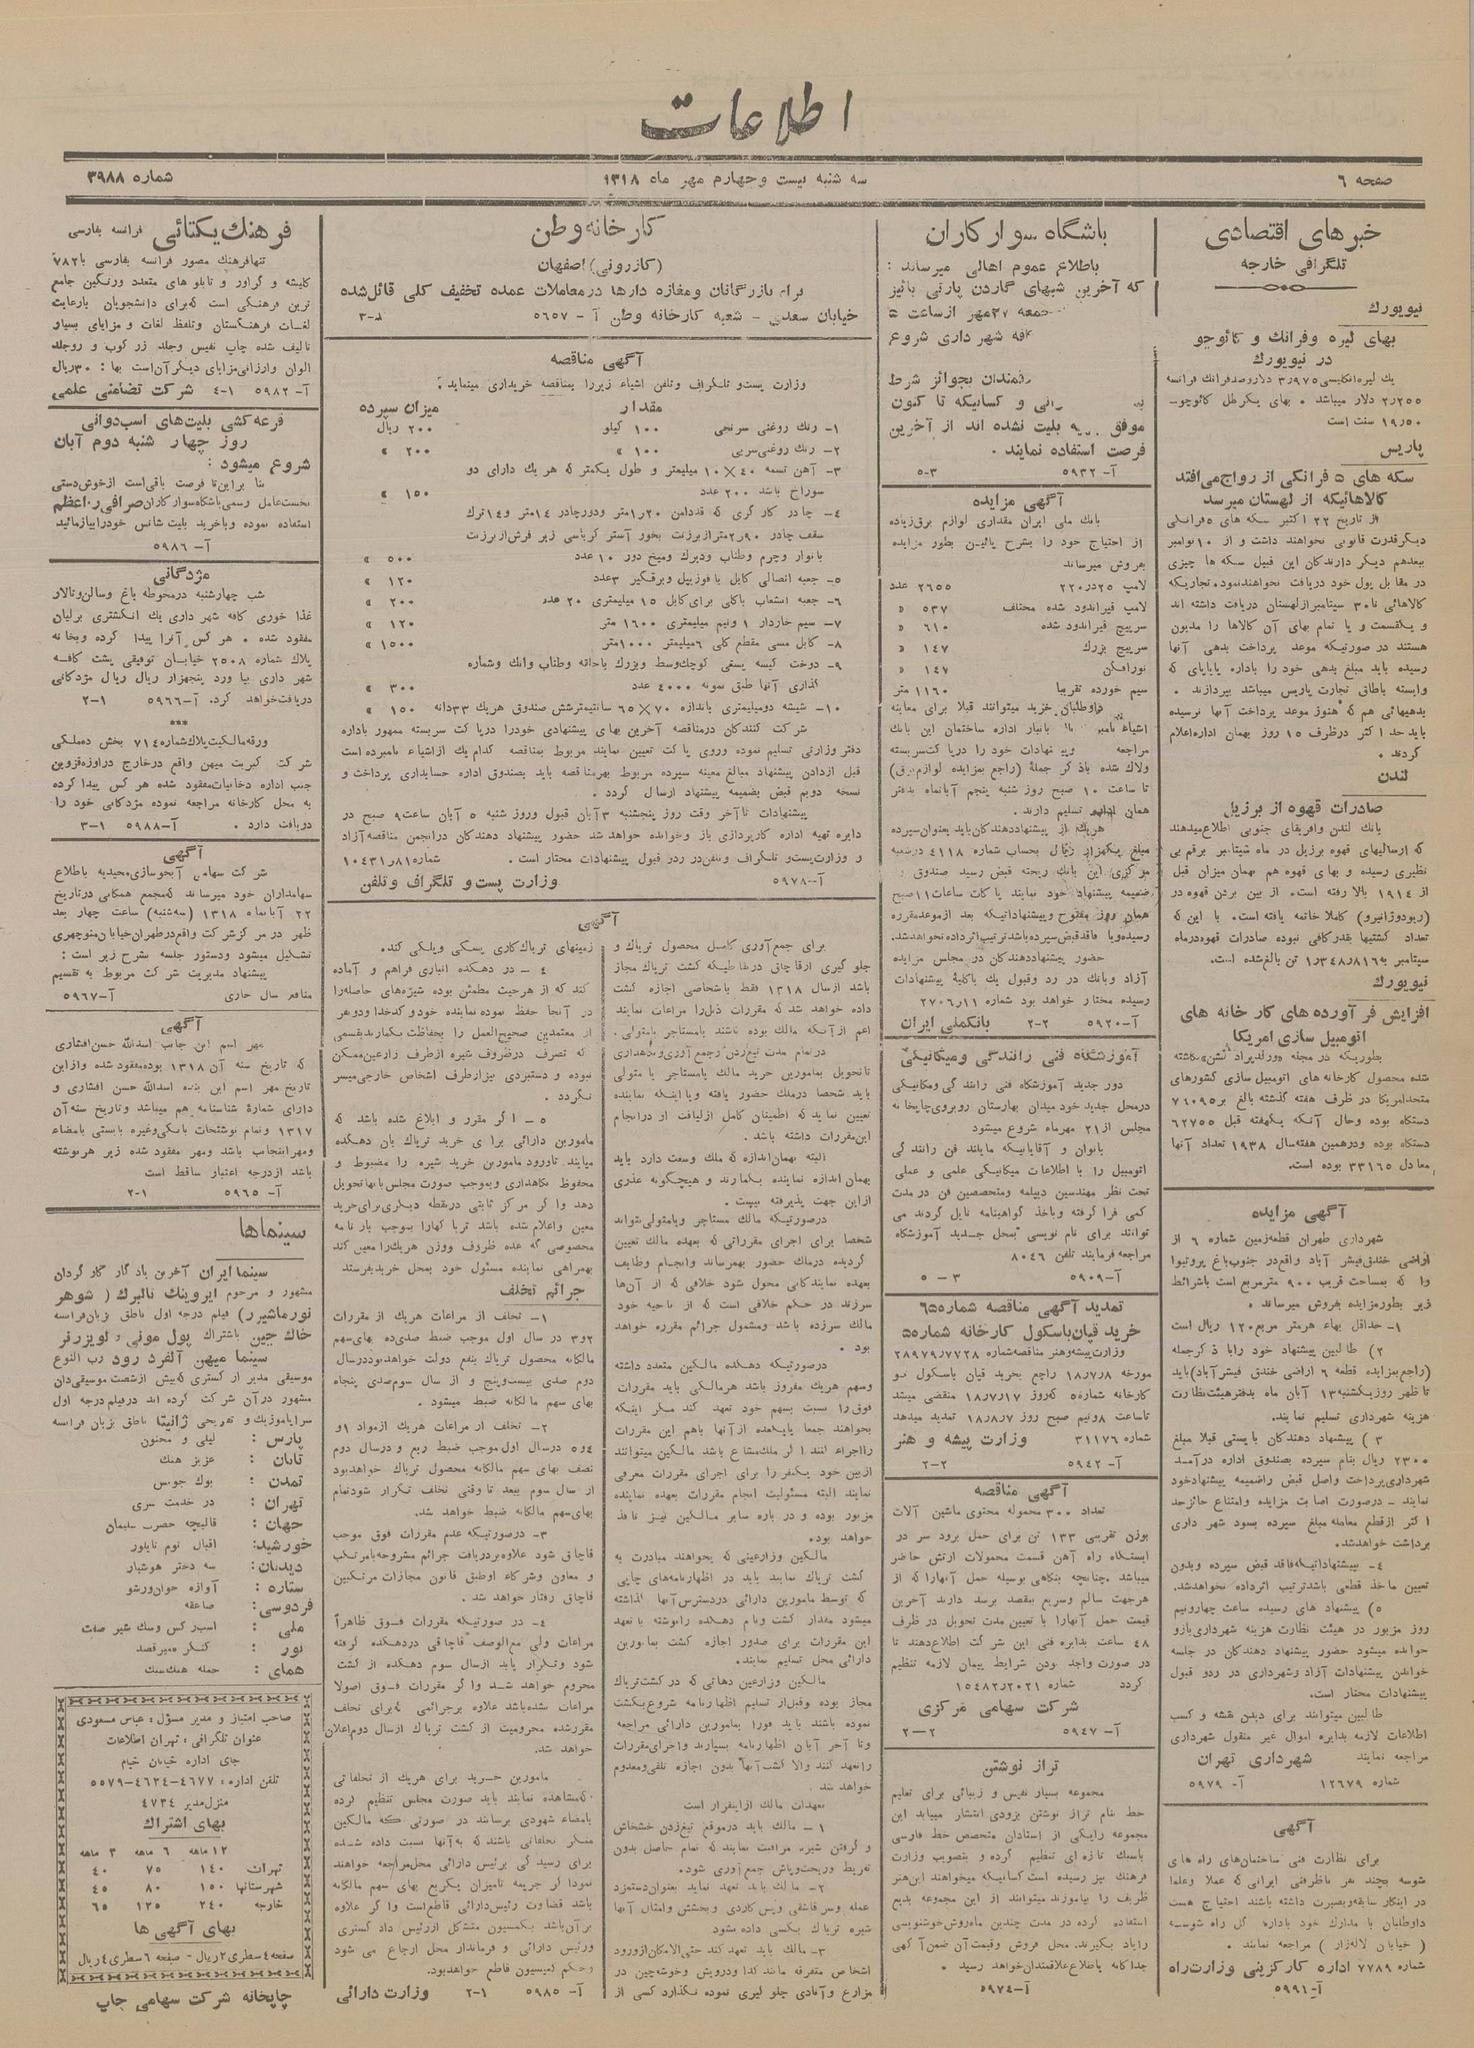 اطلاعات
صفحه ۶
سه شنبه بیست و چهارم مهر ماه ۱۳۱۸
شماره ۳۹۸۸
خبرهای اقتصادی
تلگرافی خارجه
نیویورك
بهای لیره وفرانك و كائوچو
در نیویورك
یك لیره انگلیسی ۳٫۹۷۵ دلار وصد فرانك فرانسه
۲٫۲۵۵ دلار میباشد . بهای یكرطل كائوچو-
۱۹٫۵۰ سنت است
پاریس
سكه های ۵ فرانكی از رواج می‌افتد
كالاهائیكه از لهستان میرسد
از تاریخ ۲۲ اكتبر سكه های ۵ فرانكی
دیگر قدرت قانونی نخواهند داشت و از ۱۰ نوامبر
ببعدهم دیگر دارندگان این قبیل سكه ها چیزی
در مقابل پول خود دریافت نخواهند نمود. تجاریكه
كالاهائی تا ۳۰ سپتامبر از لهستان دریافت داشته اند
و یكقسمت و یا تمام بهای آن كالاها را مدیون
هستند در صورتیكه موعد پرداخت بدهی آنها
رسیده باید مبلغ بدهی خود را باداره پایاپای كه
وابسته باطاق تجارت پاریس میباشد بپردازند .
بدهیهائی هم كه هنوز موعد پرداخت آنها نرسیده
باید حد اكثر درظرف ۱۵ روز بهمان اداره اعلام
گردند .
لندن
صادرات قهوه از برزیل
بانك لندن وافریقای جنوبی اطلاع میدهند
كه ارسالیهای قهوه برزیل در ماه سپتامبر برقم بی
نظیری رسیده و بهای قهوه هم بهمان میزان قبل
از ۱۹۱٤ بالا رفته است. از بین بردن قهوه در
(ریودوژانیرو) كاملا خاتمه یافته است. با این كه
تعداد كشتیها بقدر كافی نبوده صادرات قهوه درماه
سپتامبر به ۱٫۳٤۸٫۸۱۶ تن بالغ شده است.
نیویورك
افزایش فرآورده‌های كارخانه های
اتومبیل سازی امریكا
شده محصول كارخانه های اتومبیل سازی كشورهای
متحد امریكا در ظرف هفته گذشته بالغ بر ۷۶۰۹۵
دستگاه بوده وحال آنكه یكهفته قبل ۶۲۷۵۵
دستگاه بوده ودرهمین هفته سال ۱۹۳۸ تعداد آنها
معادل ۳۳۱۶۵ بوده است.
آگهی مزایده
شهرداری طهران قطعه زمین شماره ۶ از
اراضی خندق فیشر آباد واقع در جنوب باغ پروتیوا
را كه بمساحت قریب ۹۰۰ متر مربع است باشرائط
زیر بطور مزایده بفروش میرساند .
۱- حداقل بهاء هر متر مربع ۱۲۰ ریال است
۲) طالبین پیشنهاد خود را با ذكر جمله
(راجع بمزایده قطعه ۶ اراضی خندق فیشر آباد) باید
تا ظهر روز یكشنبه ۱۳ آبان ماه بدفتر هیئت نظارت
هزینه شهرداری تسلیم نمایند.
۳ ) پیشنهاد دهندگان بایستی قبلا مبلغ
۲۳۰۰ ریال بنام سپرده بصندوق اداره درآمد
شهرداری پرداخت واصل قبض راضمیمه پیشنهاد خود
نمایند - درصورت اصابت مزایده وامتناع حائز حد
اكثر از قطع معامله مبلغ سپرده بسود شهرداری
برداشت خواهد شد.
٤- بپیشنهاداتیكه فاقد قبض سپرده وبدون
تعیین ماخذ قطعی باشد ترتیب اثر داده نخواهد شد.
۵) پیشنهاد های رسیده ساعت چهار و نیم
روز مزبور در هیئت نظارت هزینه شهرداری باز و
خوانده میشود حضور پیشنهاد دهندگان در جلسه
خواندن پیشنهادات آزاد وشهرداری در ردو قبول
پیشنهادات مختار است.
طالبین میتوانند برای دیدن نقشه و كسب
اطلاعات لازمه بدایره اموال غیر منقول شهرداری
مراجعه نمایند شهرداری تهران
شماره ۱۲۶۷۹ آ- ۵۹۷۹
آگهی
برای نظارت فنی ساختمان‌های راه های
شوسه بچند هنر ناظر فنی ایرانی كه عملا وعلما
در اینكار سابقه و بصیرت داشته باشند احتیاج هست
داوطلبان با مدارك خود باداره كل راه شوسه
( خیابان لاله‌زار ) مراجعه نمایند .
شماره ۷۷۸۹ اداره كارگزینی وزارت راه
آ- ۵۹۹۱
باشگاه سواركاران
باطلاع عموم اهالی میرساند :
كه آخرین شبهای گاردن پارتی پائیز
جمعه ۲۷ مهر از ساعت ۵
كافه شهرداری شروع
موفق بلیت نشده اند از آخرین
فرصت استفاده نمایند .
آ- ۵۹۳۲ ۵-۳
آگهی مزایده
بانك ملی ایران مقداری لوازم برق زیاده
از احتیاج خود را بشرح پائین بطور مزایده
بفروش میرساند
لامپ ۲۵ در ۲۲۰ ۲۶۵۵ عدد
لامپ قیر اندود شده مختلف ۵۳۷ »
سرپیچ قیر اندود شده ۶۱۰ »
سرپیچ بزرگ ۱٤۷ »
نورافكن ۱٤۷ »
سیم خورده تقریبا ۱۱۶۰ متر
داوطلبان خرید میتوانند قبلا برای معاینه
ولاك شده باذكر جمله (راجع بمزایده لوازم برق)
تا ساعت ۱۰ صبح روز شنبه پنجم آبانماه بدفتر
همان اداره تسلیم دارند.
هریك از پیشنهاد دهندگان باید بعنوان سپرده
مبلغ یكهزار ریال بحساب شماره ٤۱۱۸ در شعبه
مركزی این بانك ریخته قبض رسید صندوق را
ضمیمه پیشنهاد خود نمایند پاكات ساعات ۱۱ صبح
همان روز مفتوح و پیشنهاداتیكه بعد از موعد مقرره
رسیده ویا فاقد قبض سپرده باشد ترتیب اثر داده نخواهد شد.
حضور پیشنهاد دهندگان در مجلس مزایده
آزاد وبانك در رد وقبول یك یا كلیه پیشنهادات
رسیده مختار خواهد بود شماره ۲۷۰۶٫۱۱
آ-۵۹۲۰ ۲-۲ بانك ملی ایران
آموزشگاه فنی رانندگی ومیكانیكی
دور جدید آموزشگاه فنی رانندگی ومكانیكی
درمحل جدید خود میدان بهارستان روبروی چاپخانه
مجلس از ۲۱ مهرماه شروع میشود
بانوان و آقایانیكه مایلند فن رانندگی
اتومبیل را با اطلاعات میكانیكی علمی و عملی
تحت نظر مهندسین دیپلمه ومتخصصین فن درمدت
كمی فرا گرفته وباخذ گواهینامه نایل گردند می
توانند برای نام نویسی بمحل جدید آموزشگاه
مراجعه فرمایند تلفن ۸۰٤۶
آ-۵۹۰۹ ۳ - ۵
تمدید آگهی مناقصه شماره ۶۵
خرید قپان باسكول كارخانه شماره ۵
وزارت پیشه وهنر مناقصه شماره ۲۸۹۷۹٫۷۷۲۸
مورخه ۱۸٫۷٫۸ راجع بخرید قپان باسكول نو
كارخانه شماره ۵ كه روز ۱۸٫۷٫۱۷ منقضی میشد
تا ساعت ۸ ونیم صبح روز ۱۸٫۸٫۷ تمدید میدهد
شماره ۳۱۱۷۶ وزارت پیشه و هنر
آ- ۵۹٤۲ ۲-۲
آگهی مناقصه
تعداد ۳۰۰ محموله محتوی ماشین آلات
بوزن تقریبی ۱۳۳ تن برای حمل برود سر در
ایستگاه راه آهن قسمت محمولات ارتش حاضر
میباشد. چنانچه بنگاهی بوسیله حمل آنها را كه از
هر جهت سالم وسریع بمقصد برسد دارند آخرین
قیمت حمل آنها را با تعیین مدت تحویل در ظرف
٤۸ ساعت بدایره فنی این شركت اطلاع دهند تا
در صورت واجد بودن شرایط پیمان لازمه تنظیم
گردد شماره ۱۵٤۸۲٫۲۰۲۱
شركت سهامی مركزی
آ- ۵۹٤۷ ۲-۲
تراز نوشتن
مجموعه بسیار نفیس و زیبائی برای تعلیم
خط بنام تراز نوشتن بزودی انتشار مییابد این
مجموعه رایكی از استادان متخصص خط فارسی
باسبك تازه‌ای تنظیم كرده و بتصویب وزارت
فرهنگ نیز رسیده است كسانیكه میخواهند این هنر
ظریف را بیاموزند میتوانند از این مجموعه بدیع
استفاده كرده در مدت چندین ماه روش خوشنویسی
را یاد بگیرند. محل فروش وقیمت آن ضمن آگهی
جداگانه باطلاع علاقمندان خواهد رسید .
آ-۵۹۷٤
كارخانه وطن
(كازرونی) اصفهان
برای بازرگانان ومغازه دارها در معاملات عمده تخفیف كلی قائل شده
خیابان سعدی - شعبه كارخانه وطن آ- ۵۶۵۷
آگهی مناقصه
وزارت پست و تلگراف وتلفن اشیاء زیر را بمناقصه خریداری مینماید :
مقدار میزان سپرده
۱- رنك روغنی سرنجی ۱۰۰ كیلو ۲۰۰ ریال
۲- رنك روغنی سربی ۱۰۰ » ۲۰۰ »
۳- آهن تسمه ٤۰×۱۰ میلیمتر و طول یكمتر كه هر یك دارای دو
سوراخ باشد ۲۰۰ عدد ۱۵۰ »
٤- چادر كارگری كه قد دامن ۱٫۲۰ متر ودور چادر ۱٤ متر و ۱٤ ترك
سقف چادر ۲٫۹۰ متر از برزنت بخور آستر كرباسی زیر فرش از برزنت
بانوار وچرم وطناب ودیرك ومیخ دور ۱۰ عدد ۵۰۰ »
۵- جعبه اتصالی كابل با فوزیبل وبرقگیر ۳ عدد ۱۲۰ »
۶- جعبه انشعاب باكلی برای كابل ۱۵ میلیمتری ۲۰ عدد ۲۰۰ »
۷- سیم خاردار ۱ ونیم میلیمتری ۱۶۰۰ متر ۱۲۰ »
۸- كابل مسی مقطع كلی ۶ میلیمتر ۱۰۰۰ متر ۱۵۰۰ »
۹- دوخت كیسه پستی كوچك وسط وبزرك باحلقه وطناب وانك وشماره
گذاری آنها طبق نمونه ٤۰۰۰ عدد ۳۰۰ »
۱۰- شیشه دومیلیمتری باندازه ۷۰×۶۵ سانتیمتر شش صندوق هر یك ۳۳ دانه ۱۵۰ »
شركت كنندگان درمناقصه آخرین بهای پیشنهادی خود را در پاكت سربسته ممهور باداره
دفتر وزارتی تسلیم نموده وروی پاكت تعیین نمایند مربوط بمناقصه كدام یك از اشیاء نامبرده است
قبل از دادن پیشنهاد مبالغ معینه سپرده مربوط بهر مناقصه باید بصندوق اداره حسابداری پرداخت و
نسخه دویم قبض بضمیمه پیشنهاد ارسال گردد .
پیشنهادات تا آخر وقت روز پنجشنبه ۳ آبان قبول وروز شنبه ۵ آبان ساعت ۹ صبح در
دایره تهیه اداره كارپردازی باز وخوانده خواهد شد حضور پیشنهاد دهندگان درانجمن مناقصه آزاد
و وزارت پست و تلگراف وتلفن در رد ر قبول پیشنهادات مختار است . شماره ۱۰٤۳۱٫۸۱
آ-۵۹۷۸ وزارت پست و تلگراف وتلفن
آگهی
برای جمع آوری كامل محصول تریاك و
جلوگیری از قاچاق در نقاطیكه كشت تریاك مجاز
باشد از سال ۱۳۱۸ فقط باشخاصی اجازه كشت
داده خواهد شد كه مقررات ذیل را مراعات نمایند
اعم از آنكه مالك بوده باشند یا مستاجر یا متولی .
در تمام مدت تیغ زدن و جمع آوری و نگهداری
تا تحویل بمامورین خرید مالك یا مستاجر یا متولی
باید شخصا در ملك حضور یافته ویا اینكه نماینده
تعیین نماید كه اطمینان كامل از لیاقت او در انجام
این مقررات داشته باشد .
البته بهمان اندازه كه ملك وسعت دارد باید
بهمان اندازه نماینده بگمارند و هیچگونه عذری
از این جهت پذیرفته نیست.
درصورتیكه مالك مستاجر ویا متولی نتواند
شخصا برای اجرای مقرراتی كه بعهده مالك تعیین
گردیده درملك حضور بهمرساند وانجام وظایف
بعهده نمایندگانی محول شود خلافی كه از آن‌ها
سر زند در حكم خلافی است كه از ناحیه خود
مالك سر زده باشد ومشمول جرائم مقرره خواهد
بود .
درصورتیكه دهكده مالكین متعدد داشته
وسهم هریك مفروز باشد هر مالكی باید مقررات
فوق را نسبت بسهم خود تعهد كند مگر اینكه
بخواهند جمعا یا بعده از آنها باهم این مقررات
را اجراء كنند اگر ملك مشاع باشد مالكین میتوانند
از بین خود یكنفر را برای اجرای مقررات معرفی
نمایند البته مسئولیت انجام مقررات بعهده نماینده
مزبور بوده و در باره سایر مالكین نیز نافذ
خواهد بود.
مالكین وزارعینی كه بخواهند مبادرت به
كشت تریاك نمایند باید در اظهارنامه‌های چاپی
كه توسط مامورین دارائی دردسترس آنها گذاشته
میشود مقدار كشت ونام دهكده را نوشته با تعهد
این مقررات برای صدور اجازه كشت بمامورین
دارائی محل تسلیم نمایند.
مالكین وزارعین دهاتی كه در كشت تریاك
مجاز بوده وقبل از تسلیم اظهارنامه شروع بكشت
نموده باشند باید فورا بمامورین دارائی مراجعه
وتا آخر آبان اظهارنامه بسپارند واجرای مقررات
را تعهد كنند والا كشت آنها بدون اجازه تلقی ومعدوم
خواهد شد .
تعهدات مالك از اینقرار است
۱ - مالك باید درموقع تیغ زدن خشخاش
و گرفتن شیره مراقبت نمایند كه تمام حاصل بدون
تفریط وریخت وپاش جمع آوری شود.
۲- مالك باید تعهد نماید بعنوان دستمزد
عمله وسر قاشقی وپس كاردی وبخشش وامثال آنها
شیره تریاك بكسی داده نشود .
۳- مالك باید تعهد كند حتی الامكان از ورود
اشخاص متفرقه مانند گدا ودرویش وخوشه چین در
مزارع وآبادی جلوگیری نموده نگذارد كسی از
زمینهای تریاك كاری پسكی ویلكی كند.
٤ - در دهكده انباری فراهم و آماده
كند كه از هر حیث مطمئن بوده شیره‌های حاصله را
در آنجا حفظ نموده نماینده خود و كدخدا ودونفر
از معتمدین صحیح‌العمل را بحفاظت بگمارند بقسمی
كه تصرف درظروف شیره ازطرف زارعین ممكن
نبوده و دستبردی نیز ازطرف اشخاص خارجی میسر
نگردد .
۵ - اگر مقرر و ابلاغ شده باشد كه
مامورین دارائی برای خرید تریاك بان دهكده
میایند تا ورود مامورین خرید شیره را مضبوط و
محفوظ نگاهداری وبموجب صورت مجلس بانها تحویل
دهد واگر مركز ثابتی درنقطه دیگری برای خرید
معین واعلام شده باشد تریاكها را بموجب بارنامه
مخصوصی كه عده ظروف ووزن هریك را معین كند
بهمراهی نماینده مسئول خود بمحل خرید بفرستد
جرائم تخلف
۱- تخلف از مراعات هریك از مقررات
۲و۳ در سال اول موجب ضبط صدی ده بهای سهم
مالكانه محصول تریاك بنفع دولت خواهد بود درسال
دوم صدی بیست وپنج و از سال سوم صدی پنجاه
بهای سهم مالكانه ضبط میشود .
۲- تخلف از مراعات هریك از مواد ۱و
٤و۵ درسال اول موجب ضبط ربع و درسال دوم
نصف بهای سهم مالكانه محصول تریاك خواهد بود
از سال سوم ببعد تا وقتی تخلف تكرار شود تمام
بهای سهم مالكانه ضبط خواهد شد.
۳- درصورتیكه عدم مقررات فوق موجب
قاچاق شود علاوه بر دریافت جرائم مشروحه بامرتكب
و معاون وشركاء او طبق قانون مجازات مرتكبین
قاچاق رفتار خواهد شد .
٤- در صورتیكه مقررات فوق ظاهراً
مراعات ولی مع‌الوصف قاچاقی دردهكده گرفته
شود وتكرار یابد ازسال سوم دهكده از كشت
محروم خواهد شد واگر مقررات فوق اصولا
مراعات نشده باشد علاوه برجرائمی كه برای تخلف
مقرر شده محرومیت از كشت تریاك از سال دوم اعلان
خواهد شد.
مامورین خرید برای هریك از تخلفاتی
كه مشاهده نمایند باید صورت مجلس تنظیم كرده
بامضاء شهودی برسانند در صورتی كه مالكین
منكر تخلفاتی باشند كه به آنها نسبت داده شده
برای رسیدگی برئیس دارائی محل مراجعه خواهند
نمود اگر جریمه تا میزان یكربع بهای سهم مالكانه
باشد قضاوت رئیس دارائی قاطع است واگر علاوه
بر آن باشد بكمسیون متشكل از رئیس دادگستری
ورئیس دارائی و فرماندار محل ارجاع می شود
وحكم كمیسیون قاطع خواهد بود.
آ- ۵۹۸۵ ۲-۱ وزارت دارائی
فرهنك یكتائی فرانسه بفارسی
تنها فرهنك مصور فرانسه بفارسی با ۷۸۲
كلیشه و گراور و تابلو های متعدد ورنگین جامع
ترین فرهنگی است كه برای دانشجویان بارعایت
لغات فرهنگستان وتلفظ لغات و مزایای بسیار
تالیف شده چاپ نفیس وجلد زر كوب و روجلد
الوان وارزانی مزایای دیگر آن است بها : ۳۰ ریال
آ- ۵۹۸۲ ٤-۱ شركت تضامنی علمی
قرعه كشی بلیت‌های اسب‌دوانی
روز چهار شنبه دوم آبان
شروع میشود :
بنا براین تا فرصت باقی است از خوش دستی
نخست عامل رسمی باشگاه سواركاران صرافی راعظم
استفاده نموده وباخرید بلیت شانس خود را بیازمائید
آ- ۵۹۸۶
مژدگانی
شب چهارشنبه درمحوطه باغ وسالن وتالار
غذا خوری كافه شهرداری یك انگشتری برلیان
مفقود شده . هر كس آنرا پیدا كرده وبخانه
پلاك شماره ۲۵۰۸ خیابان توفیقی پشت كافه
شهرداری بیاورد پنجهزار ریال ریال مژدگانی
دریافت خواهد كرد. آ-۵۹۶۶ ۲-۱
***
ورقه مالكیت پلاك شماره ۷۱٤ بخش ده ملكی
شركت كبریت میهن واقع درخارج دروازه قزوین
جنب اداره دخانیات مفقود شده هر كس پیدا كرده
به محل كارخانه مراجعه نموده مژدگانی خود را
دریافت دارد . آ-۵۹۸۸ ۳-۱
آگهی
شركت سهامی آبجوسازی مجیدیه باطلاع
سهامداران خود میرساند كه مجمع همگانی در تاریخ
۲۲ آبانماه ۱۳۱۸ (سه شنبه) ساعت چهار بعد
ظهر در مركز شركت واقع در طهران خیابان منوچهری
تشكیل میشود ودستور جلسه بشرح زیر است :
پیشنهاد مدیریت شركت مربوط به تقسیم
منافع سال جاری آ-۵۹۶۷
آگهی
مهر اسم این جانب اسدالله حسن افشاری
كه تاریخ سنه آن ۱۳۱۸ بوده مفقود شده و از این
تاریخ مهر اسم این بنده اسدالله حسن افشاری و
دارای شمارهٔ شناسنامه هم میباشد وتاریخ سنه آن
۱۳۱۷ وتمام نوشتجات بانكی وغیره بایستی بامضاء
ومهر اینجانب باشد ومهر مفقود شده زیر هر نوشته
باشد از درجه اعتبار ساقط است
آ- ۵۹۶۵ ۲-۱
سینماها
سینما ایران آخرین یادگار كارگردان
مشهور و مرحوم ایروینك تالبرك ( شوهر
نورماشیرر) فیلم درجه اول ناطق بزبان فرانسه
خاك چین باشتراك پول مونی و لویزرنر
سینما میهن آلفرد رود رب النوع
موسیقی مدیر اركستری كه بیش از شصت موسیقی‌دان
مشهور در آن شركت كرده اند درفیلم درجه اول
سراپا موزیك و تفریحی ژانیتا ناطق بزبان فرانسه
پارس : لیلی و مجنون
تابان : عزیز هند
تمدن : بوك جونس
تهران : در خدمت سری
جهان : قالیچه حضرت سلیمان
خورشید: اقبال توم تایلور
دیدبان: سه دختر هوشیار
ستاره : آوازه خوان ورشو
فردوسی: صاعقه
ملی : اسب ركس وسك شیر صفت
نور :
همای :
صاحب امتیاز و مدیر مسؤل : عباس مسعودی
عنوان تلگرافی : تهران اطلاعات
جای اداره خیابان خیام
تلفن اداره : ٤۶۷۷-٤۶۳٤-۵۵۷۹
منزل مدیر ٤۷۳٤
بهای اشتراك
۱۲ ماهه ۶ ماهه ۳ ماهه
تهران ۱٤۰ ۷۵ ٤۰
شهرستانها ۱۵۰ ۸۰ ٤۵
خارجه ۲٤۰ ۱۲۵ ۶۵
بهای آگهی ها
صفحه ٤ سطری ۲ ریال - صفحه ۶ سطری ٤ ریال
چاپخانه شركت سهامی چاپ